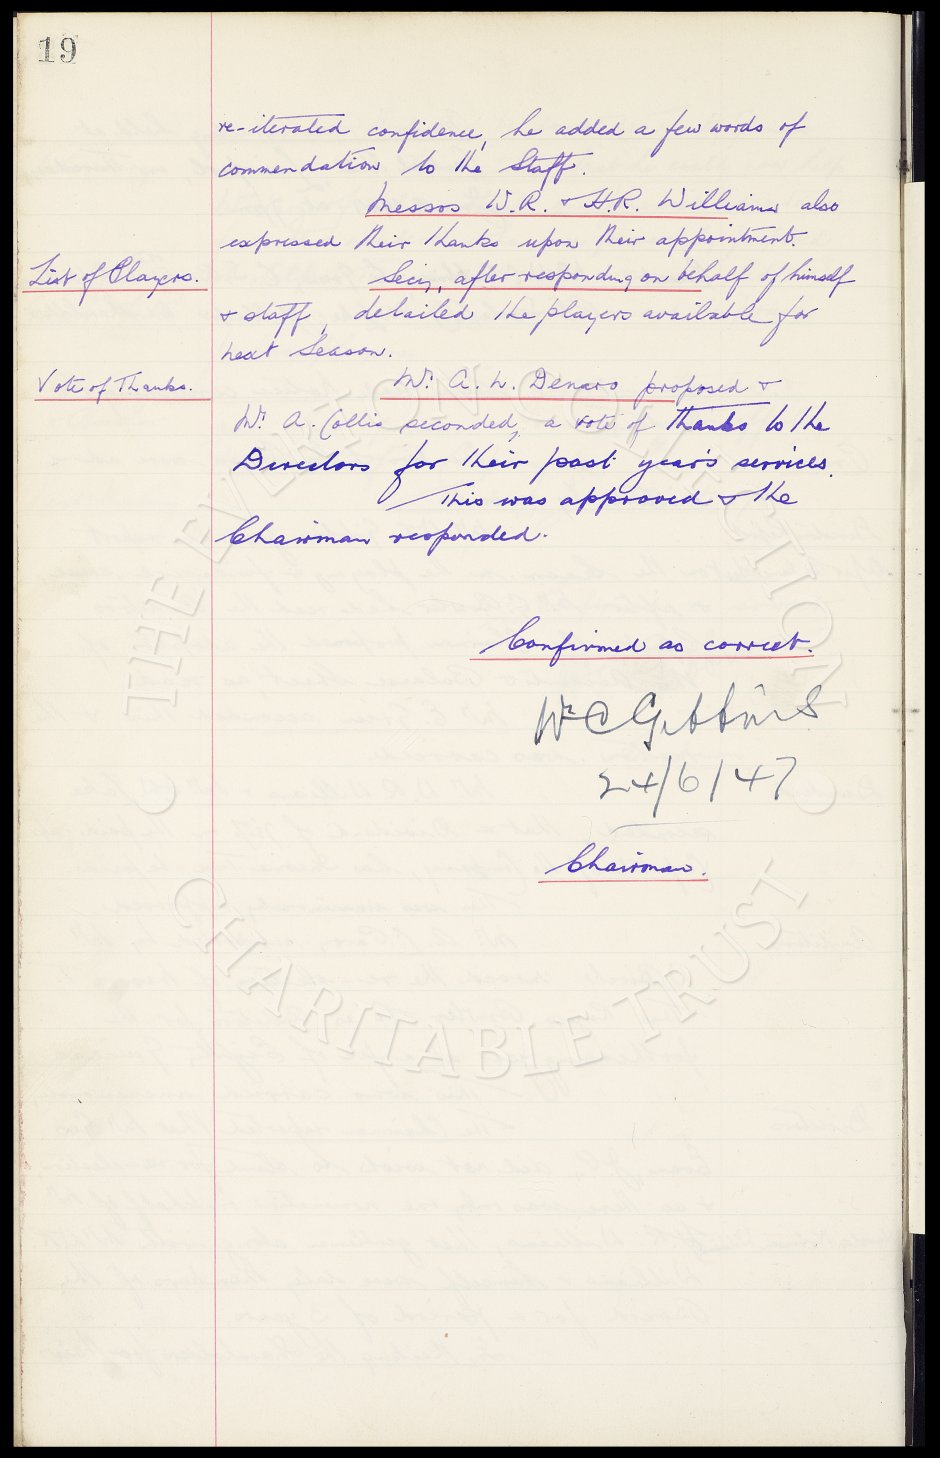 19
re-iterated confidence, he added a few words of
commendation to the Staff.
Messrs W.R. & H.R. Williams also
expressed their thanks upon their appointment.
List of Players.
Secy, after responding on behalf of himself
& staff, detailed the players available for
next Season.
Vote of Thanks.
Mr. A. L. Denaro proposed &
Mr. A. Collis seconded, a vote of thanks to the
Directors for their past year's services.
This was approved & the
Chairman responded.
Confirmed as correct.
Wm C Gibbins
24/6/47
Chairman.
THE EVERTON COLLECTION
CHARITABLE TRUST